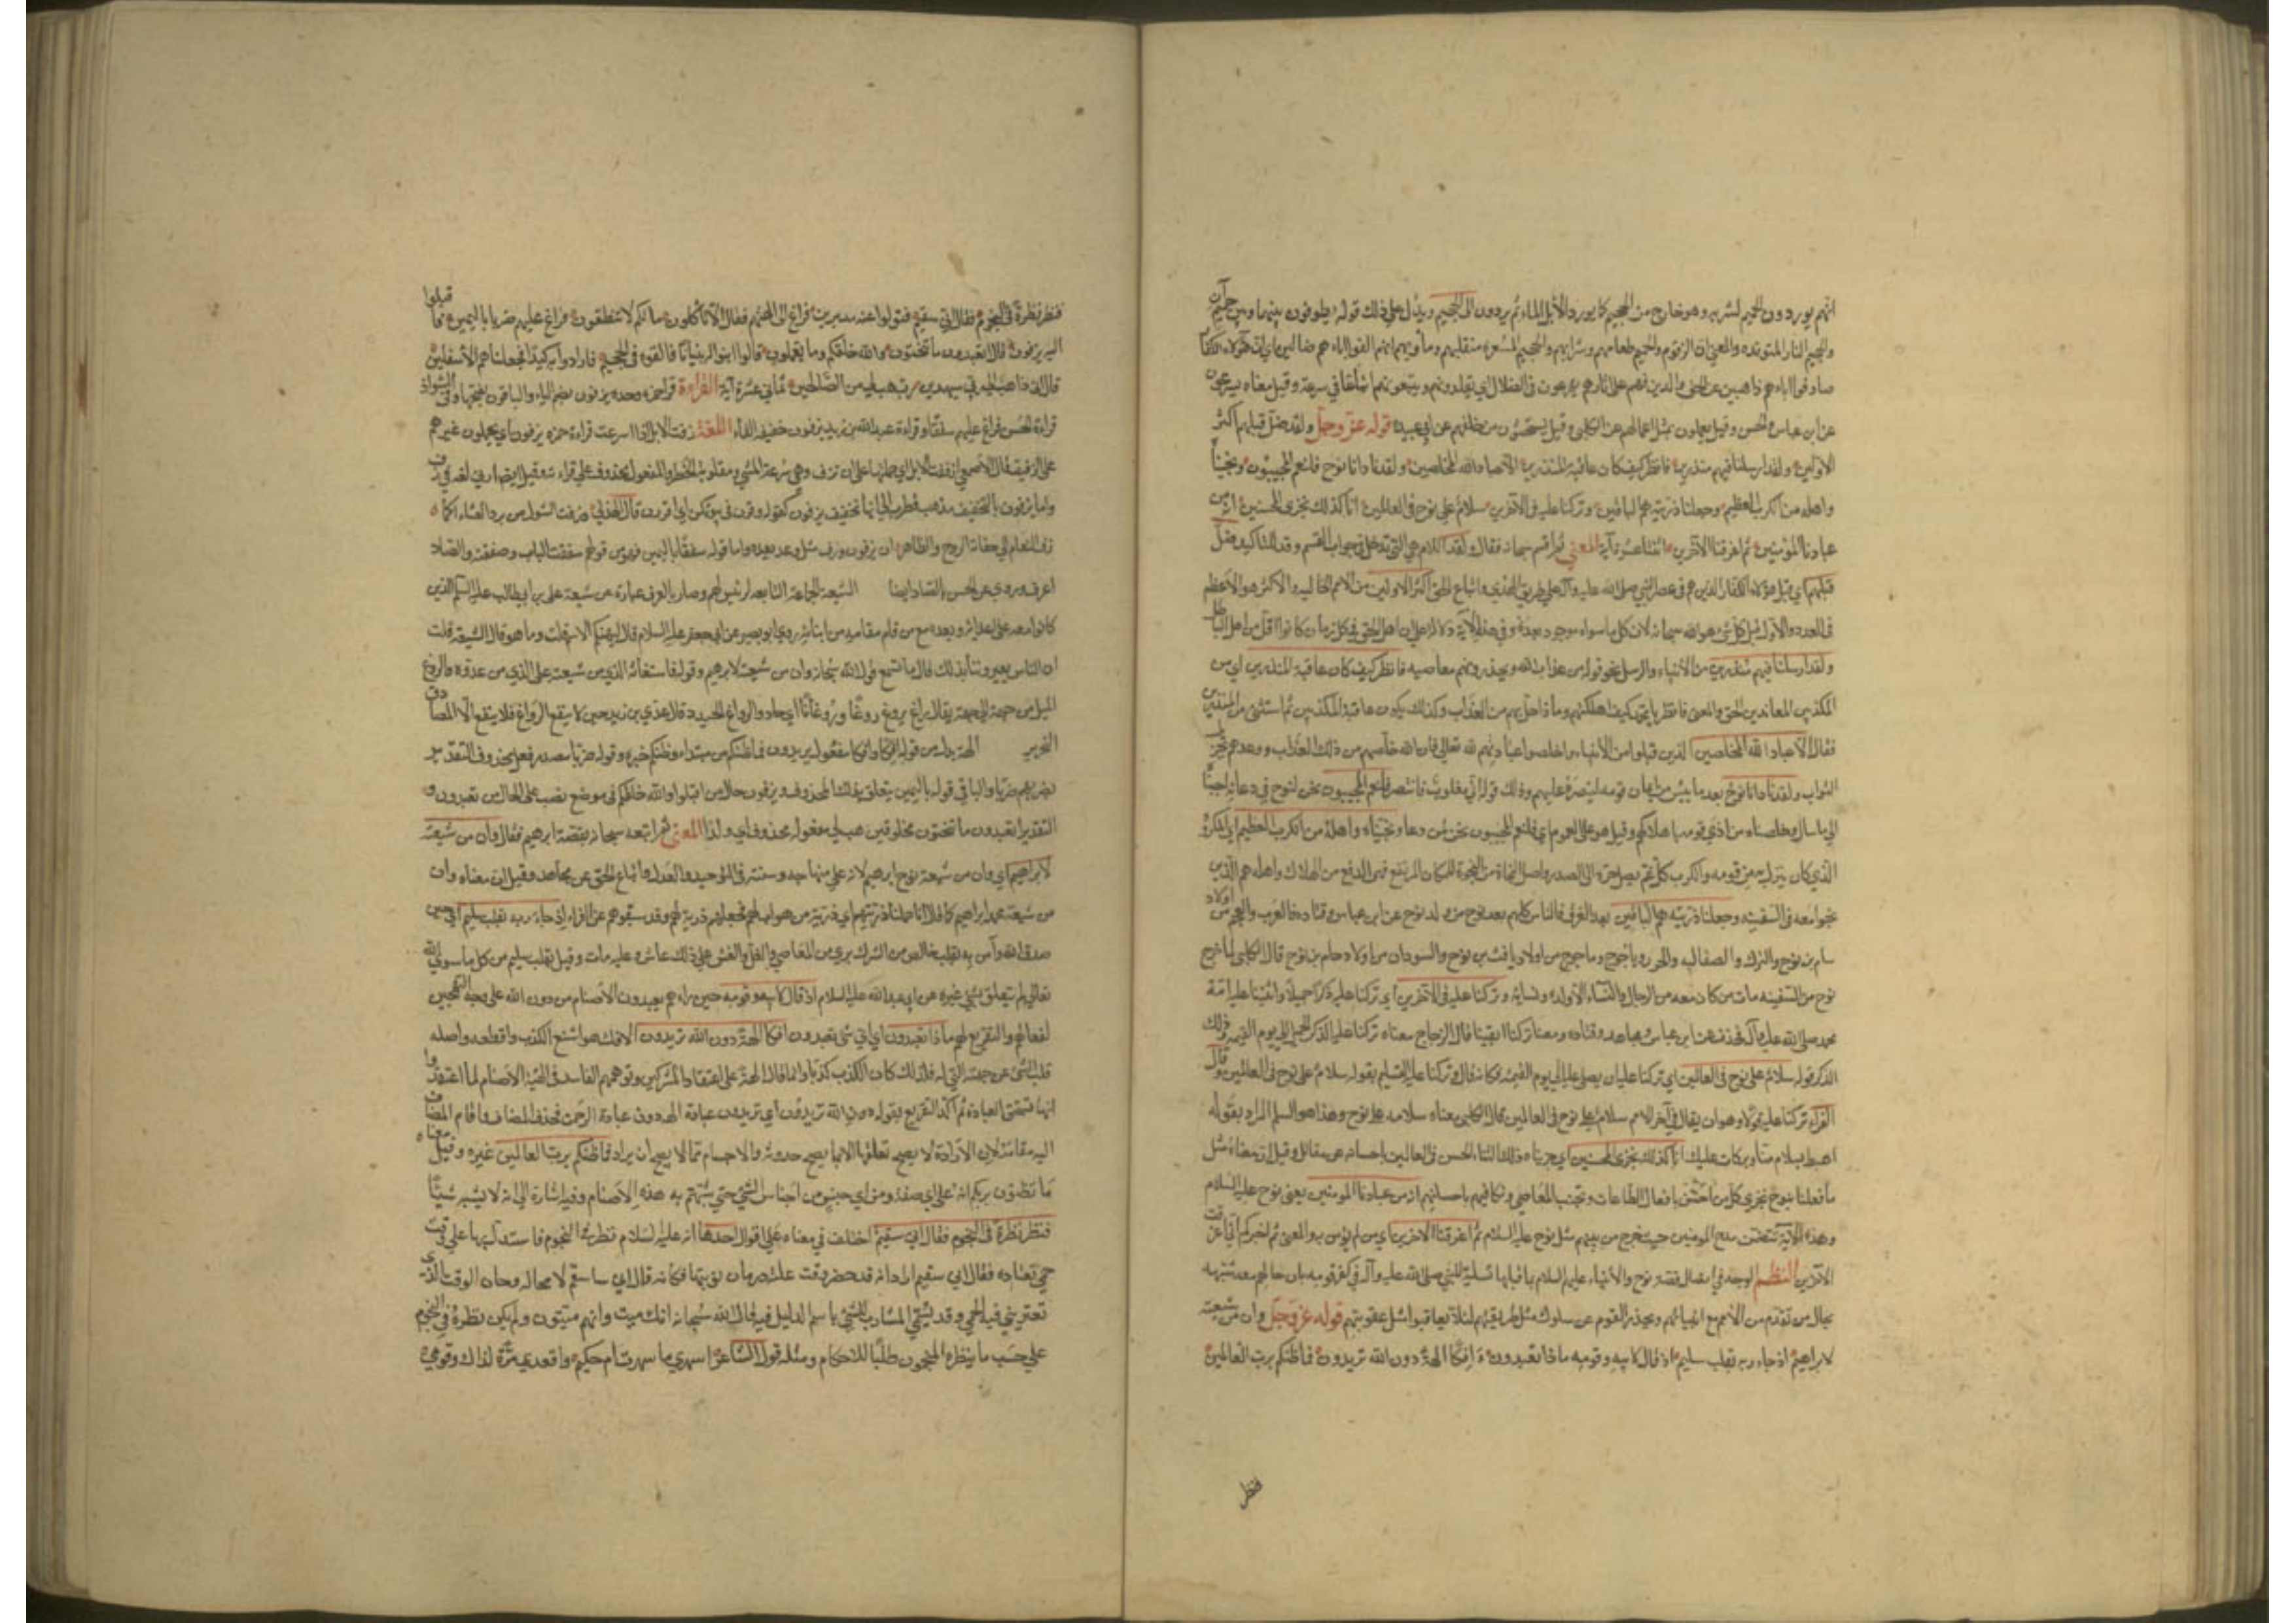 انهم يوردون الحميم لشربه وهو خارج من الجحيم كما يورد الأبل الماء ثم يردون الى الجحيم ويدل على ذلك قوله يطوفون بينها وبين حميم آن
والجحيم النار المتوقده والمعنى ان الزقوم والحميم طعامهم وشرابهم والجحيم المسعرة منقلبهم ومأويهم انهم الفوا اباءهم ضالين اي ان هؤلاء الكفار
صادفوا اباءهم ذاهبين عن الحق والدين فهم على اثارهم يهرعون في الضلال اي يقلدونهم ويتبعونهم اتباعا في سرعة وقيل معناه يسرعون
عن ابن عباس والحسن وقيل يعملون بمثل اعمالهم عن الكلبي وقيل يستحثون من خلفهم عن ابي عبيدة قوله عز وجل ولقد ضل قبلهم اكثر
الاولين ولقد ارسلنا فيهم منذرين فانظر كيف كان عاقبة المنذرين الا عباد الله المخلصين ولقد نادانا نوح فلنعم المجيبون ونجيناه
واهله من الكرب العظيم وجعلنا ذريته هم الباقين وتركنا عليه في الآخرين سلام على نوح في العالمين انا كذلك نجزي المحسنين انه من
عبادنا المؤمنين ثم اغرقنا الآخرين اثنتا عشرة آية المعنى ثم اقسم سبحانه فقال ولقد اللام هي التي تدخل في جواب القسم وقد للتاكيد ضل
قبلهم اي قبل هؤلاء الكفار الذين هم في عصر النبي صلى الله عليه وآله عن طريق الهدى واتباع الحق اكثر الاولين من الامم الخاليه والاكثر هو الأعظم
في العدد والأول قبل كل شئ هو الله سبحانه لان كل ما سواه موجود بعده وفي هذه الآية دلالة على ان اهل الحق في كل زمان كانوا اقل من اهل الباطل
ولقد ارسلنا فيهم منذرين من الأنبياء والرسل يخوفونهم من عذاب الله ويحذرونهم معاصيه فانظر كيف كان عاقبة المنذرين اي من
المكذبين المعاندين للحق والمعنى فانظر يا محمد كيف اهلكتهم وماذا حل بهم من العذاب وكذلك يكون عاقبة المكذبين ثم استثنى من المنذرين
فقال الا عباد الله المخلصين الذين قبلوا من الأنبياء واخلصوا عبادتهم لله تعالى فان الله خلصهم من ذلك العذاب ووعدهم بجزيل
الثواب ولقد نادانا نوح بعد ما يئس من ايمان قومه لينصره عليهم وذلك قوله اني مغلوب فانتصر فلنعم المجيبون نحن لنوح في دعائه اجبناه
الى ما سأل وخلصناه من اذى قومه باهلاكهم وقيل هو على العموم اي فلنعم المجيبون نحن لمن دعا ونجيناه واهله من الكرب العظيم اي المكروه
الذي كان ينزل به من قومه والكرب كل غم يصل حره الى الصدر واصل النجاة من النجوة للمكان المرتفع فهي الدفع من الهلاك واهله هم الذين
نجوا معه في السفينه وجعلنا ذريته هم الباقين بعد الغرق فالناس كلهم بعد نوح من ولد نوح عن ابن عباس وقتاده فالعرب والعجم من اولاد
سام بن نوح والترك والصقالبه والخزر وياجوج وماجوج من اولاد يافث بن نوح والسودان من اولاد حام بن نوح قال الكلبي لما خرج
نوح من السفينه مات من كان معه من الرجال والنساء الا ولده ونساءه وتركنا عليه في الآخرين اي تركنا عليه ذكرا جميلا واثنينا عليه في امة
محمد صلى الله عليه وآله فحذف عن ابن عباس ومجاهد وقتاده ومعنى تركنا ابقينا قال الزجاج معناه تركنا عليه الذكر الجميل الى يوم القيمه وذلك
الذكر قوله سلام على نوح في العالمين اي تركنا عليه ان يصلى عليه الى يوم القيمه فكانه قال وتركنا عليه التسليم بقوله سلام على نوح في العالمين وقال
الفراء تركنا عليه قولا وهو ان يقال في آخر الامم سلام على نوح في العالمين قال الكلبي معناه سلامة على نوح وهذا هو السلام المراد بقوله
اهبط بسلام منا وبركات عليك انا كذلك نجزي المحسنين اي جزيناه ذلك الثناء الحسن في العالمين باحسانه عن مقاتل وقيل ان معناه مثل
ما فعلنا بنوح نجزي كل من احسن بافعال الطاعات وتجنب المعاصي ونكافيهم باحسانهم انه من عبادنا المؤمنين يعني نوح عليه السلام
وهذه الآية تتضمن مدح المؤمنين حيث خرج من بينهم مثل نوح عليه السلام ثم اغرقنا الآخرين اي من لم يؤمن به والمعنى ثم اخبركم اني اغرقت
الآخرين النظم الوجه في اتصال قصة نوح والأنبياء عليهم السلام بما قبلها تسلية للنبي صلى الله عليه وآله في كفر قومه بان حالهم معه شبيهه
بحال من تقدم من الأمم مع انبيائهم وتحذير القوم عن سلوك مثل طريقتهم لئلا يعاقبوا بمثل عقوبتهم قوله عز وجل وان من شيعته
لابراهيم اذ جاء ربه بقلب سليم اذ قال لابيه وقومه ماذا تعبدون ءافكا الهة دون الله تريدون فما ظنكم برب العالمين
فنظر
فنظر نظرة في النجوم فقال اني سقيم فتولوا عنه مدبرين فراغ الى الهتهم فقال الا تأكلون ما لكم لا تنطقون فراغ عليهم ضربا باليمين فاقبلوا
اليه يزفون قال اتعبدون ما تنحتون والله خلقكم وما تعملون قالوا ابنوا له بنيانا فالقوه في الجحيم فارادوا به كيدا فجعلناهم الأسفلين
وقال اني ذاهب الى ربي سيهدين رب هب لي من الصالحين ثماني عشرة آية القراءة قرأ حمزه وحده يزفون بضم الياء والباقون بفتحها وفي الشواذ
قراءة الحسن فراغ عليهم سفقا وقراءة عبد الله بن يزيد يزفون خفيفه الفاء اللغة زفت الابل اذا اسرعت قراءة حمزه يزفون اي يحملون غيرهم
على الزفيف قال الاصمعي ازففت الابل اي حملتها على ان تزف وهي سرعة المشي ومقاربة الخطو والمفعول محذوف على قراءته وقيل ايضا ازف لغة في زف
واما يزفون بالتخفيف فذهب قطرب الى انها تخفيف يزفون كقوله وقرن في بيوتكن اي اقررن قال الهذلي وزفت الشول من برد العشاء كما
زف النعام الى حفانه الروح والظاهر ان يزفون وزف مثل وعد يعد واما قوله سفقا باليمين فهو من قولهم سفقت الباب وصفقته والصاد
اعرف وروي عن الحسن بالصاد ايضا الشيعة الجماعة التابعه لرئيس لهم وصار بالعرف عبارة عن شيعة علي بن ابيطالب عليه السلام الذين
كانوا معه على اعدائه وبعده مع من قام مقامه من ابنائه روى ابو بصير عن ابي جعفر عليه السلام قال ليهنكم الاسم قلت وما هو قال الشيعة قلت
ان الناس يعيروننا بذلك قال اما تسمع قول الله سبحانه وان من شيعته لابرهيم وقوله فاستغاثه الذي من شيعته على الذي من عدوه والروغ
الميل من جهة الى جهة يقال راغ يروغ روغا وروغانا اي حاد والرواغ الحياد قال عدي بن زيد حين لا ينفع الرواغ فلا ينفع الا المصادق
النحرير الهة بدل من قوله افكا وافكا مفعول يريدون فما ظنكم ما مبتداء وظنكم خبره وقوله ضربا مصدر فعل محذوف التقدير
يضربهم ضربا والباء في قوله باليمين يتعلق بذلك المحذوف ويزفون حال من اقبلوا والله خلقكم في موضع نصب على الحال من تعبدون و
التقدير اتعبدون ما تنحتون مخلوقين هب لي مفعوله محذوف اي ولدا المعنى ثم اتبعه سبحانه بقصة ابرهيم فقال وان من شيعته
لابراهيم اي وان من شيعة نوح ابرهيم لانه على منهاجه وسنته في التوحيد والعدل واتباع الحق عن مجاهد وقيل ان معناه وان
من شيعة محمد ابراهيم كما قال انا حملنا ذريتهم اي ذرية من هو اب لهم فجعلهم ذرية لهم وقد سبقوهم عن الفراء اذ جاء ربه بقلب سليم اي حين
صدق الله وآمن به بقلب خالص من الشرك بري من المعاصي والغل والغش على ذلك عاش وعليه مات وقيل بقلب سليم من كل ما سوى الله
تعالى لم يتعلق بشئ غيره عن ابي عبد الله عليه السلام اذ قال لابيه وقومه حين رآهم يعبدون الأصنام من دون الله على وجه التهجين
لفعالهم والتقريع لهم ماذا تعبدون اي اي شئ تعبدون افكا الهة دون الله تريدون الافك هو اشنع الكذب وافظعه واصله
قلب الشئ عن جهته التي له فلذلك كان الكذب كذبا وانما قال الهة على اعتقاد المشركين وتوهمهم الفاسد في الهية الاصنام لما اعتقدوا
انها تستحق العبادة ثم اكد التقريع بقوله دون الله تريدون اي تريدون عبادة الهة دون عبادة الرحمن فحذف المضاف واقام المضاف
اليه مقامه لان الأرادة لا يصح تعلقها الا بما يصح حدوثه والاجسام مما لا يصح ان يراد فما ظنكم برب العالمين غيره وقيل معناه
ما تظنون بربكم انه على اي صفة ومن اي جنس من اجناس الشئ حتى شبهتم به هذه الأصنام وفيه اشارة الى انه لا يشبه شيئا
فنظر نظرة في النجوم فقال اني سقيم اختلف في معناه على اقوال احدها انه عليه السلام نظر في النجوم فاستدل بها على وقت
حمى تعتاده فقال اني سقيم اراد انه قد حضر وقت علته وزمان نوبتها فكانه قال اني سأسقم لا محاله وحان الوقت الذي
تعتريني فيه الحمى وقد يسمى المشارف للشئ باسم الداخل فيه قال الله سبحانه انك ميت وانهم ميتون ولم يكن نظره في النجوم
على حسب ما ينظره المنجمون طلبا للاحكام ومثله قول الشاعر اسهري ما سهرت ام حكيم واقعدي مرة لذاك وقومي